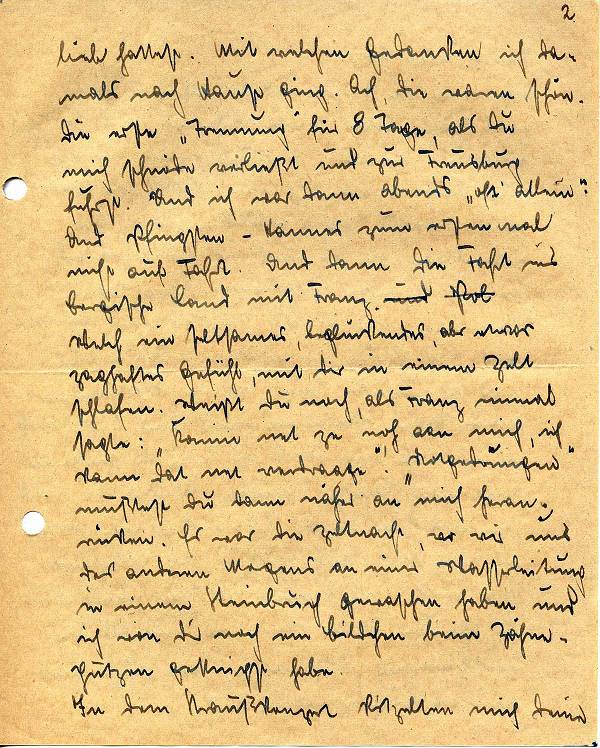 2
liebhattest. Mit welchen Gedanken ich da-
mals nach Hause ging. Ach, die waren schön.
Die erste „Trennung" für 8 Tage, als Du
mich schnöde verließt und zur Freusburg
fuhrst. Und ich war dann abends „oft allein".
Und Pfingsten - Hannes zum ersten mal
nicht auf Fahrt. Und dann die Fahrt ins
bergische Land mit Franz. und
Welch ein seltsames, beglückendes, aber etwas
zaghaftes Gefühl, mit dir in einem Zelt
schlafen. Weißt Du noch, als Franz einmal
sagte: „Komm net ze noh aan mich, ich
kann dat net verdraage". „Notgedrungen"
mußtest Du dann näher an mich heran-
rücken. Es war die Zeltnacht, wo wir uns
des anderen Morgens an einer Wasserleitung
in einem Steinbruch gewaschen haben und
ich von Dir noch ein Bildchen beim Zähne-
putzen geknipst habe.
In dem Straußkonzert kitzelten mich Deine